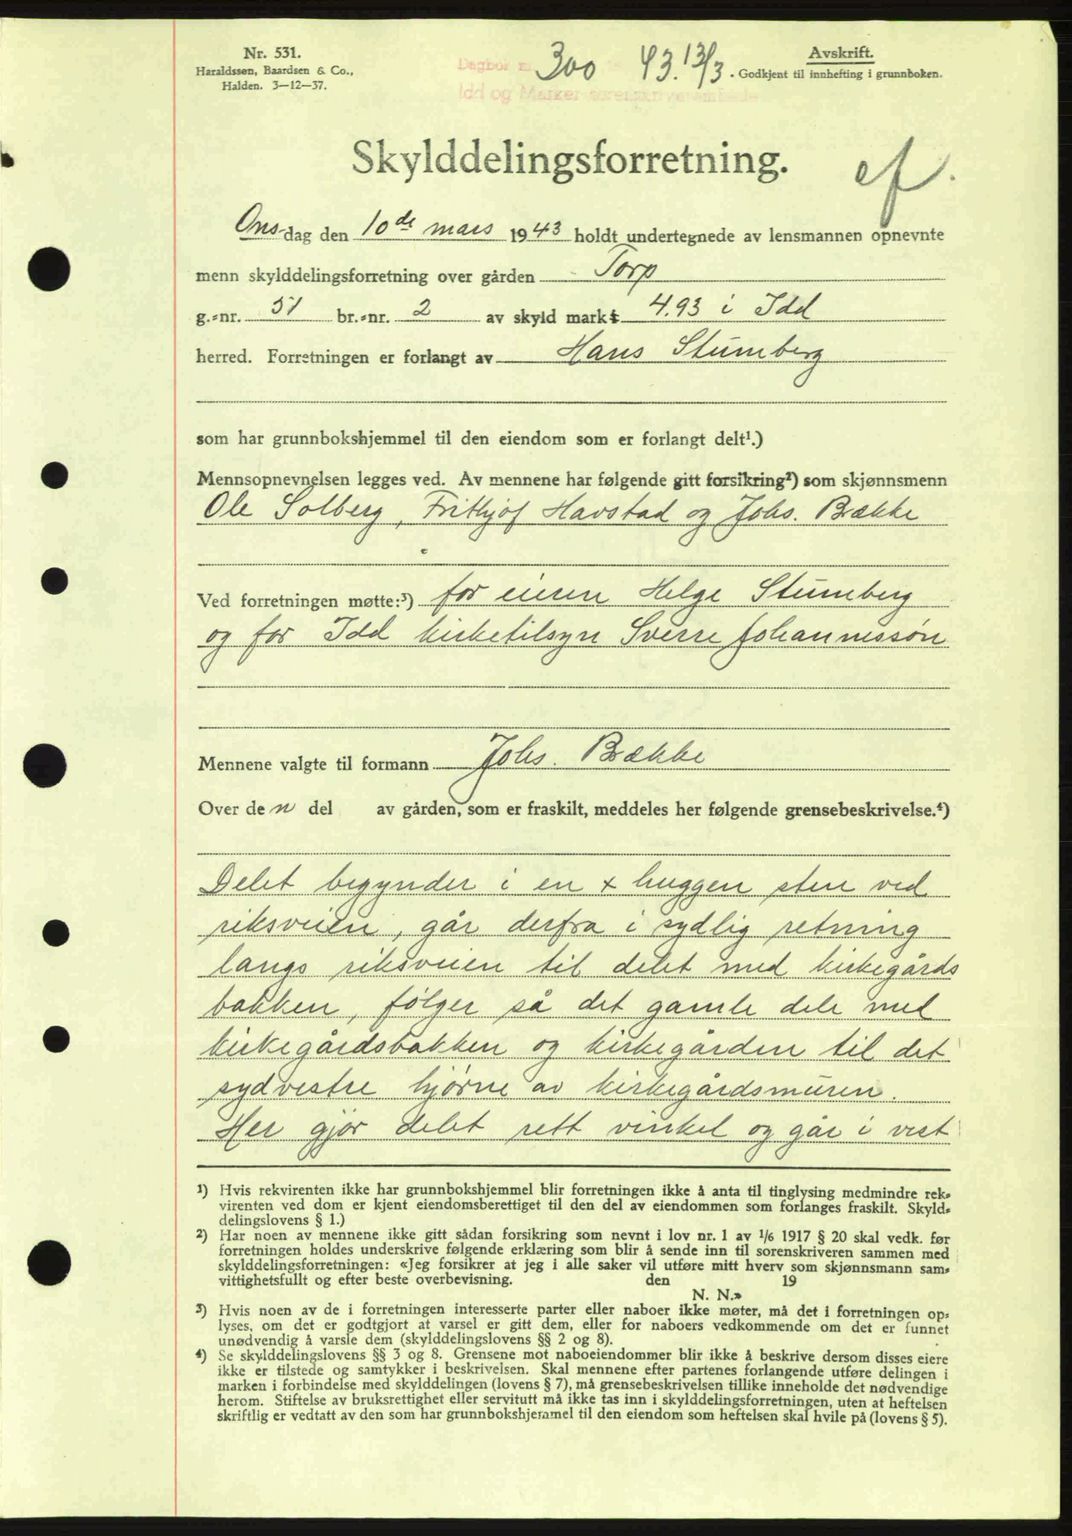 Nr. 531.
Haraldssen, Baardsen & Co.,
Halden. 3—12—37.
Dagbok nr. 300 43. 13/3
Avskrift.
Godkjent til innhefting i grunnboken.
Idd og Marker sorenskriverembede
Skylddelingsforretning.
ef.
Onsdag den 10de mars 1943 holdt undertegnede av lensmannen opnevnte
menn skylddelingsforretning over gården Torp
g.-nr. 51 br.-nr. 2 av skyld mark 4.93 i Idd
herred. Forretningen er forlangt av Hans Stumberg
som har grunnbokshjemmel til den eiendom som er forlangt delt¹.)
Mennsopnevnelsen legges ved. Av mennene har følgende gitt forsikring²) som skjønnsmenn
Ole Solberg, Frithjof Havstad og Johs. Bække
Ved forretningen møtte:³) for eieren Helge Stumberg
og for Idd kirketilsyn Sverre Johannessøn
Mennene valgte til formann Johs. Bække
Over den del av gården, som er fraskilt, meddeles her følgende grensebeskrivelse.⁴)
Delet begynder i en x huggen sten ved
riksveien, går derfra i sydlig retning
langs riksveien til delet med kirkegårds
bakken, følger så det gamle dele med
kirkegårdsbakken og kirkegården til det
sydvestre hjørne av kirkegårdsmuren.
Her gjør delet rett vinkel og går i vest
¹) Hvis rekvirenten ikke har grunnbokshjemmel blir forretningen ikke å anta til tinglysing medmindre rek-
virenten ved dom er kjent eiendomsberettiget til den del av eiendommen som forlanges fraskilt. Skyld-
delingslovens § 1.)
²) Har noen av mennene ikke gitt sådan forsikring som nevnt i lov nr. 1 av 1/6 1917 § 20 skal vedk. før
forretningen holdes underskrive følgende erklæring som blir å sende inn til sorenskriveren sammen med
skylddelingsforretningen: «Jeg forsikrer at jeg i alle saker vil utføre mitt hverv som skjønnsmann sam-
vittighetsfullt og efter beste overbevisning. den 19
N. N.»
³) Hvis noen av de i forretningen interesserte parter eller naboer ikke møter, må det i forretningen op-
lyses, om det er godtgjort at varsel er gitt dem, eller for naboers vedkommende om det er funnet
unødvendig å varsle dem (skylddelingslovens §§ 2 og 8).
⁴) Se skylddelingslovens §§ 3 og 8. Grensene mot naboeiendommer blir ikke å beskrive dersom disses eiere
ikke er tilstede og samtykker i beskrivelsen. Skal mennene efter partenes forlangende utføre delingen i
marken i forbindelse med skylddelingen (lovens § 7), må grensebeskrivelsen tillike inneholde det nødvendige
herom. Stiftelse av bruksrettighet eller servitutt må ikke tas inn i skylddelingsforretningen, uten at heftelsen
skriftlig er vedtatt av den som har grunnbokshjemmel til den eiendom som heftelsen skal hvile på (lovens § 5).